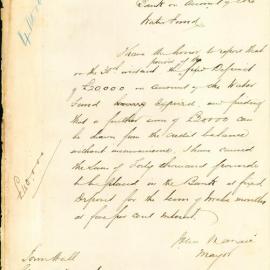 Bank on account of the
Water Fund
I have the honor, to report that
period of the
on the 30th instant the fixed Deposit
of £20000 on account of the Water
Fund expired, and finding
that a further sum of £20000 can
be drawn from the credit balance
without inconvenience, I have caused
the Sum of Forty thousand pounds
to be placed in the Bank at fixed
Deposit for the term of twelve months
at five per cent interest.
Mayor
£40000
Town Hall